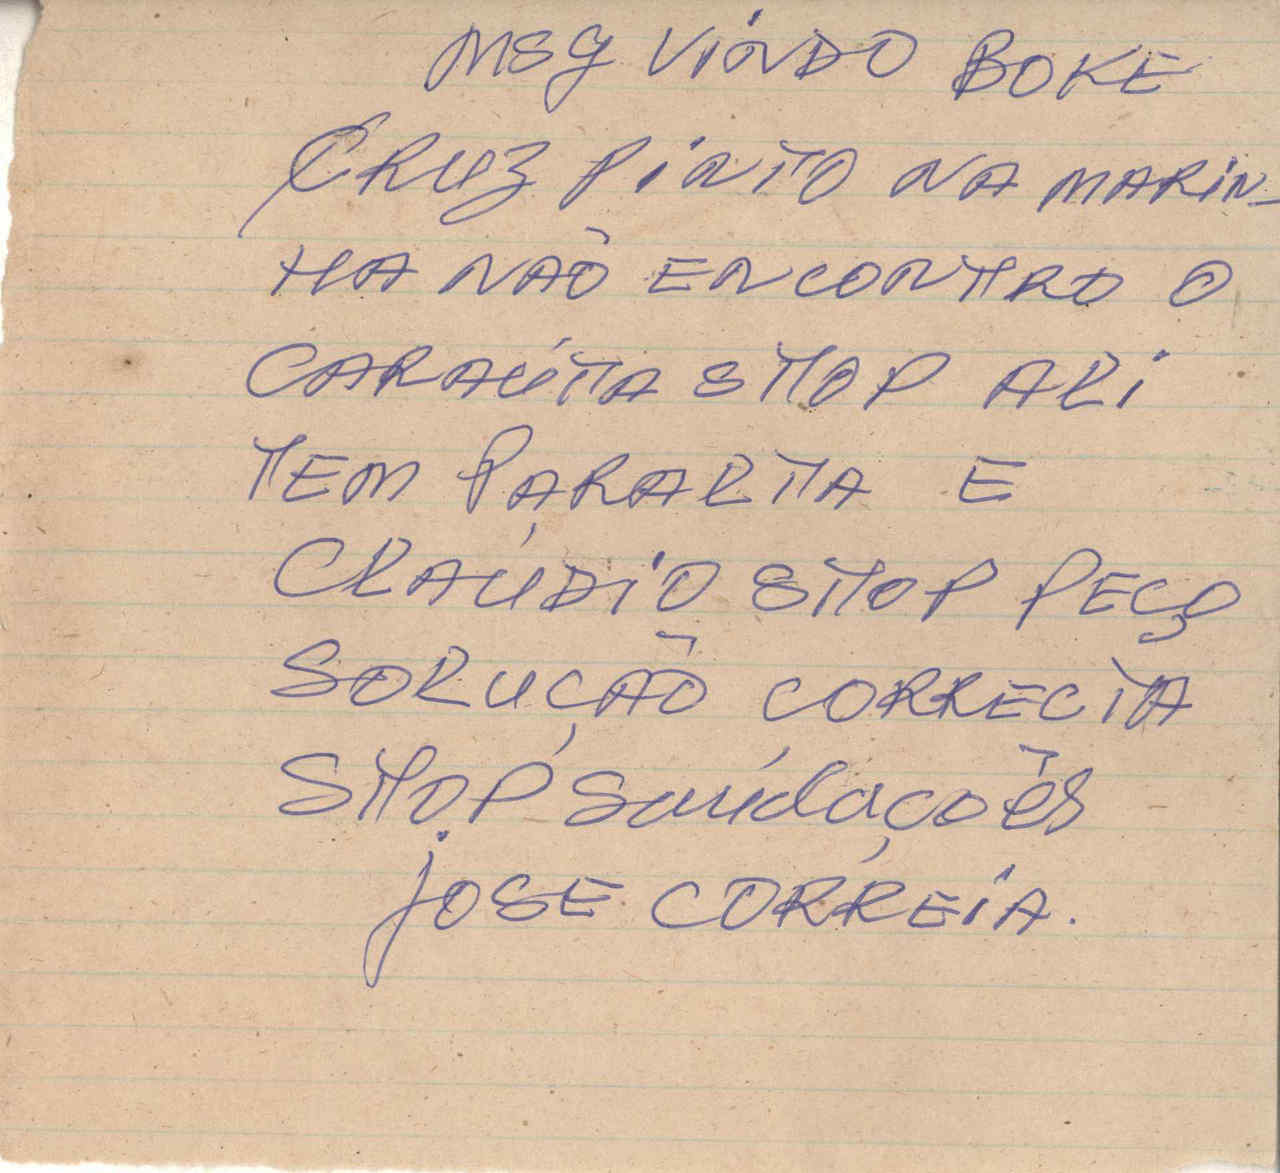 MSG VINDO BOKE
CRUZ PINTO NA MARIN-
HA NÃO ENCONTRO O
CARAÚTA STOP ALI
TEM PARALTA E
CLAÚDIO STOP PEÇO
SOLUÇÃO CORRECTA
STOP Saúdações
JOSE CORREIA.